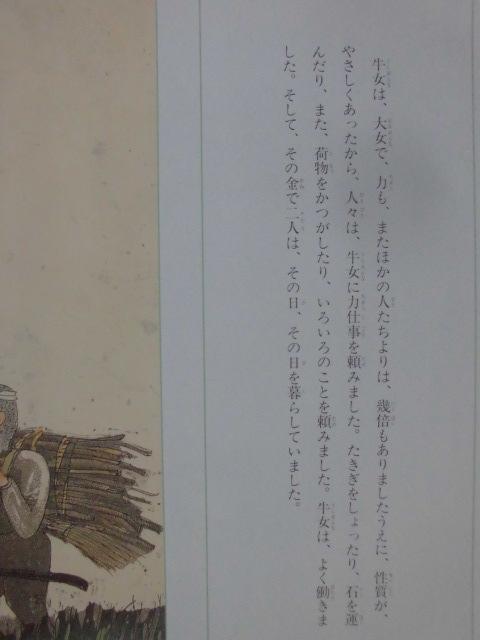 牛女は、大女で、力も、またほかの人たちよりは、幾倍もありましたうえに、性質が、
やさしくあったから、人々は、牛女に力仕事を頼みました。たきぎをしょったり、石を運
んだり、また、荷物をかつがしたり、いろいろのことを頼みました。牛女は、よく働きま
した。そして、その金で二人は、その日、その日を暮らしていました。